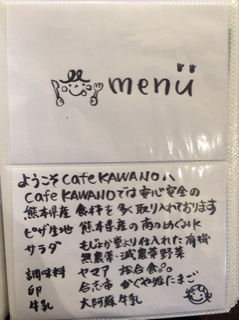 menü
ようこそ Cafe KAWANO へ
Cafe KAWANOでは安心安全の
熊本県産 食材を多く取り入れております
ピザ生地 熊本県産の南のめぐみ
サラダ より仕入れた有機
無農薬・減農薬野菜
調味料 ヤマア
卵 合志市 かぐや姫たまご
牛乳 大阿蘇牛乳